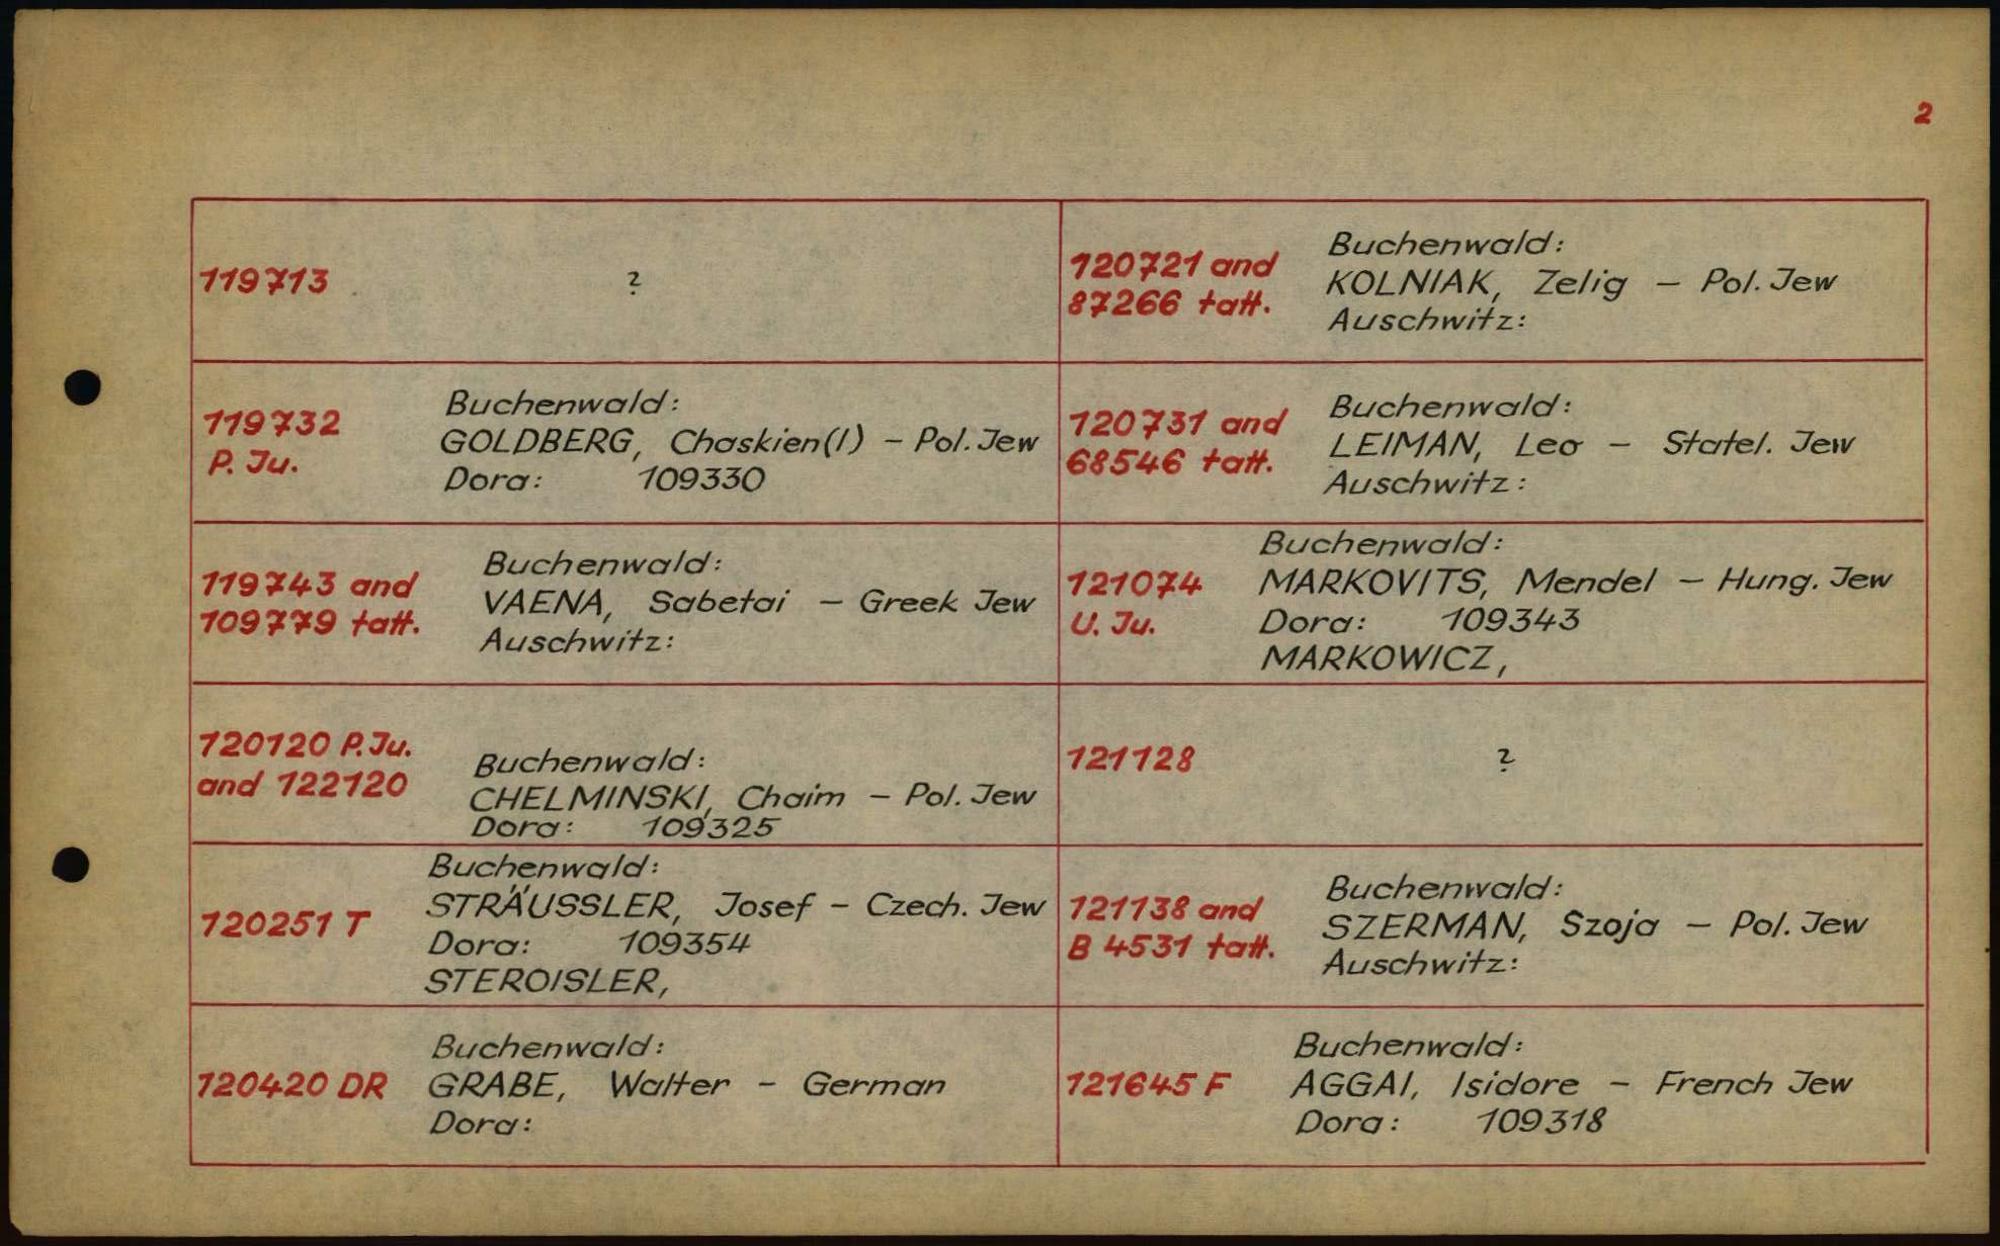 2
119713
?
119732
P. Ju.
Buchenwald:
GOLDBERG, Chaskien(l) – Pol. Jew
Dora: 109330
119743 and
109779 tatt.
Buchenwald:
VAENA, Sabetai – Greek Jew
Auschwitz:
120120 P. Ju.
and 122120
Buchenwald:
CHELMINSKI, Chaim – Pol. Jew
Dora: 109325
120251 T
Buchenwald:
STRÄUSSLER, Josef – Czech. Jew
Dora: 109354
STEROISLER,
120420 DR
Buchenwald:
GRABE, Walter – German
Dora:
120721 and
87266 tatt.
Buchenwald:
KOLNIAK, Zelig – Pol. Jew
Auschwitz:
120731 and
68546 tatt.
Buchenwald:
LEIMAN, Leo – Statel. Jew
Auschwitz:
121074
U. Ju.
Buchenwald:
MARKOVITS, Mendel – Hung. Jew
Dora: 109343
MARKOWICZ,
121128
?
121138 and
B 4531 tatt.
Buchenwald:
SZERMAN, Szoja – Pol. Jew
Auschwitz:
121645 F
Buchenwald:
AGGAI, Isidore – French Jew
Dora: 109318